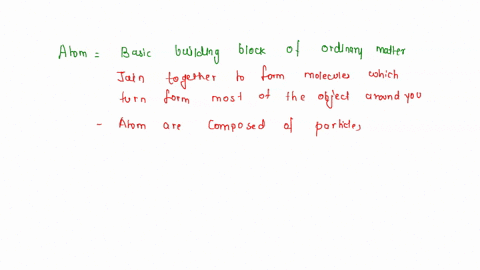 Atom = Basic building block of ordinary matter
Join together to form molecules which
turn form most of the object around you
- Atom are composed of particles